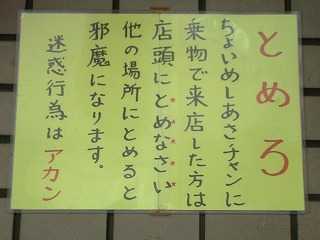 とめろ
ちょいめしあさチャンに
乗物で来店した方は
店頭にとめなさい
他の場所にとめると
邪魔になります。
迷惑行為はアカン